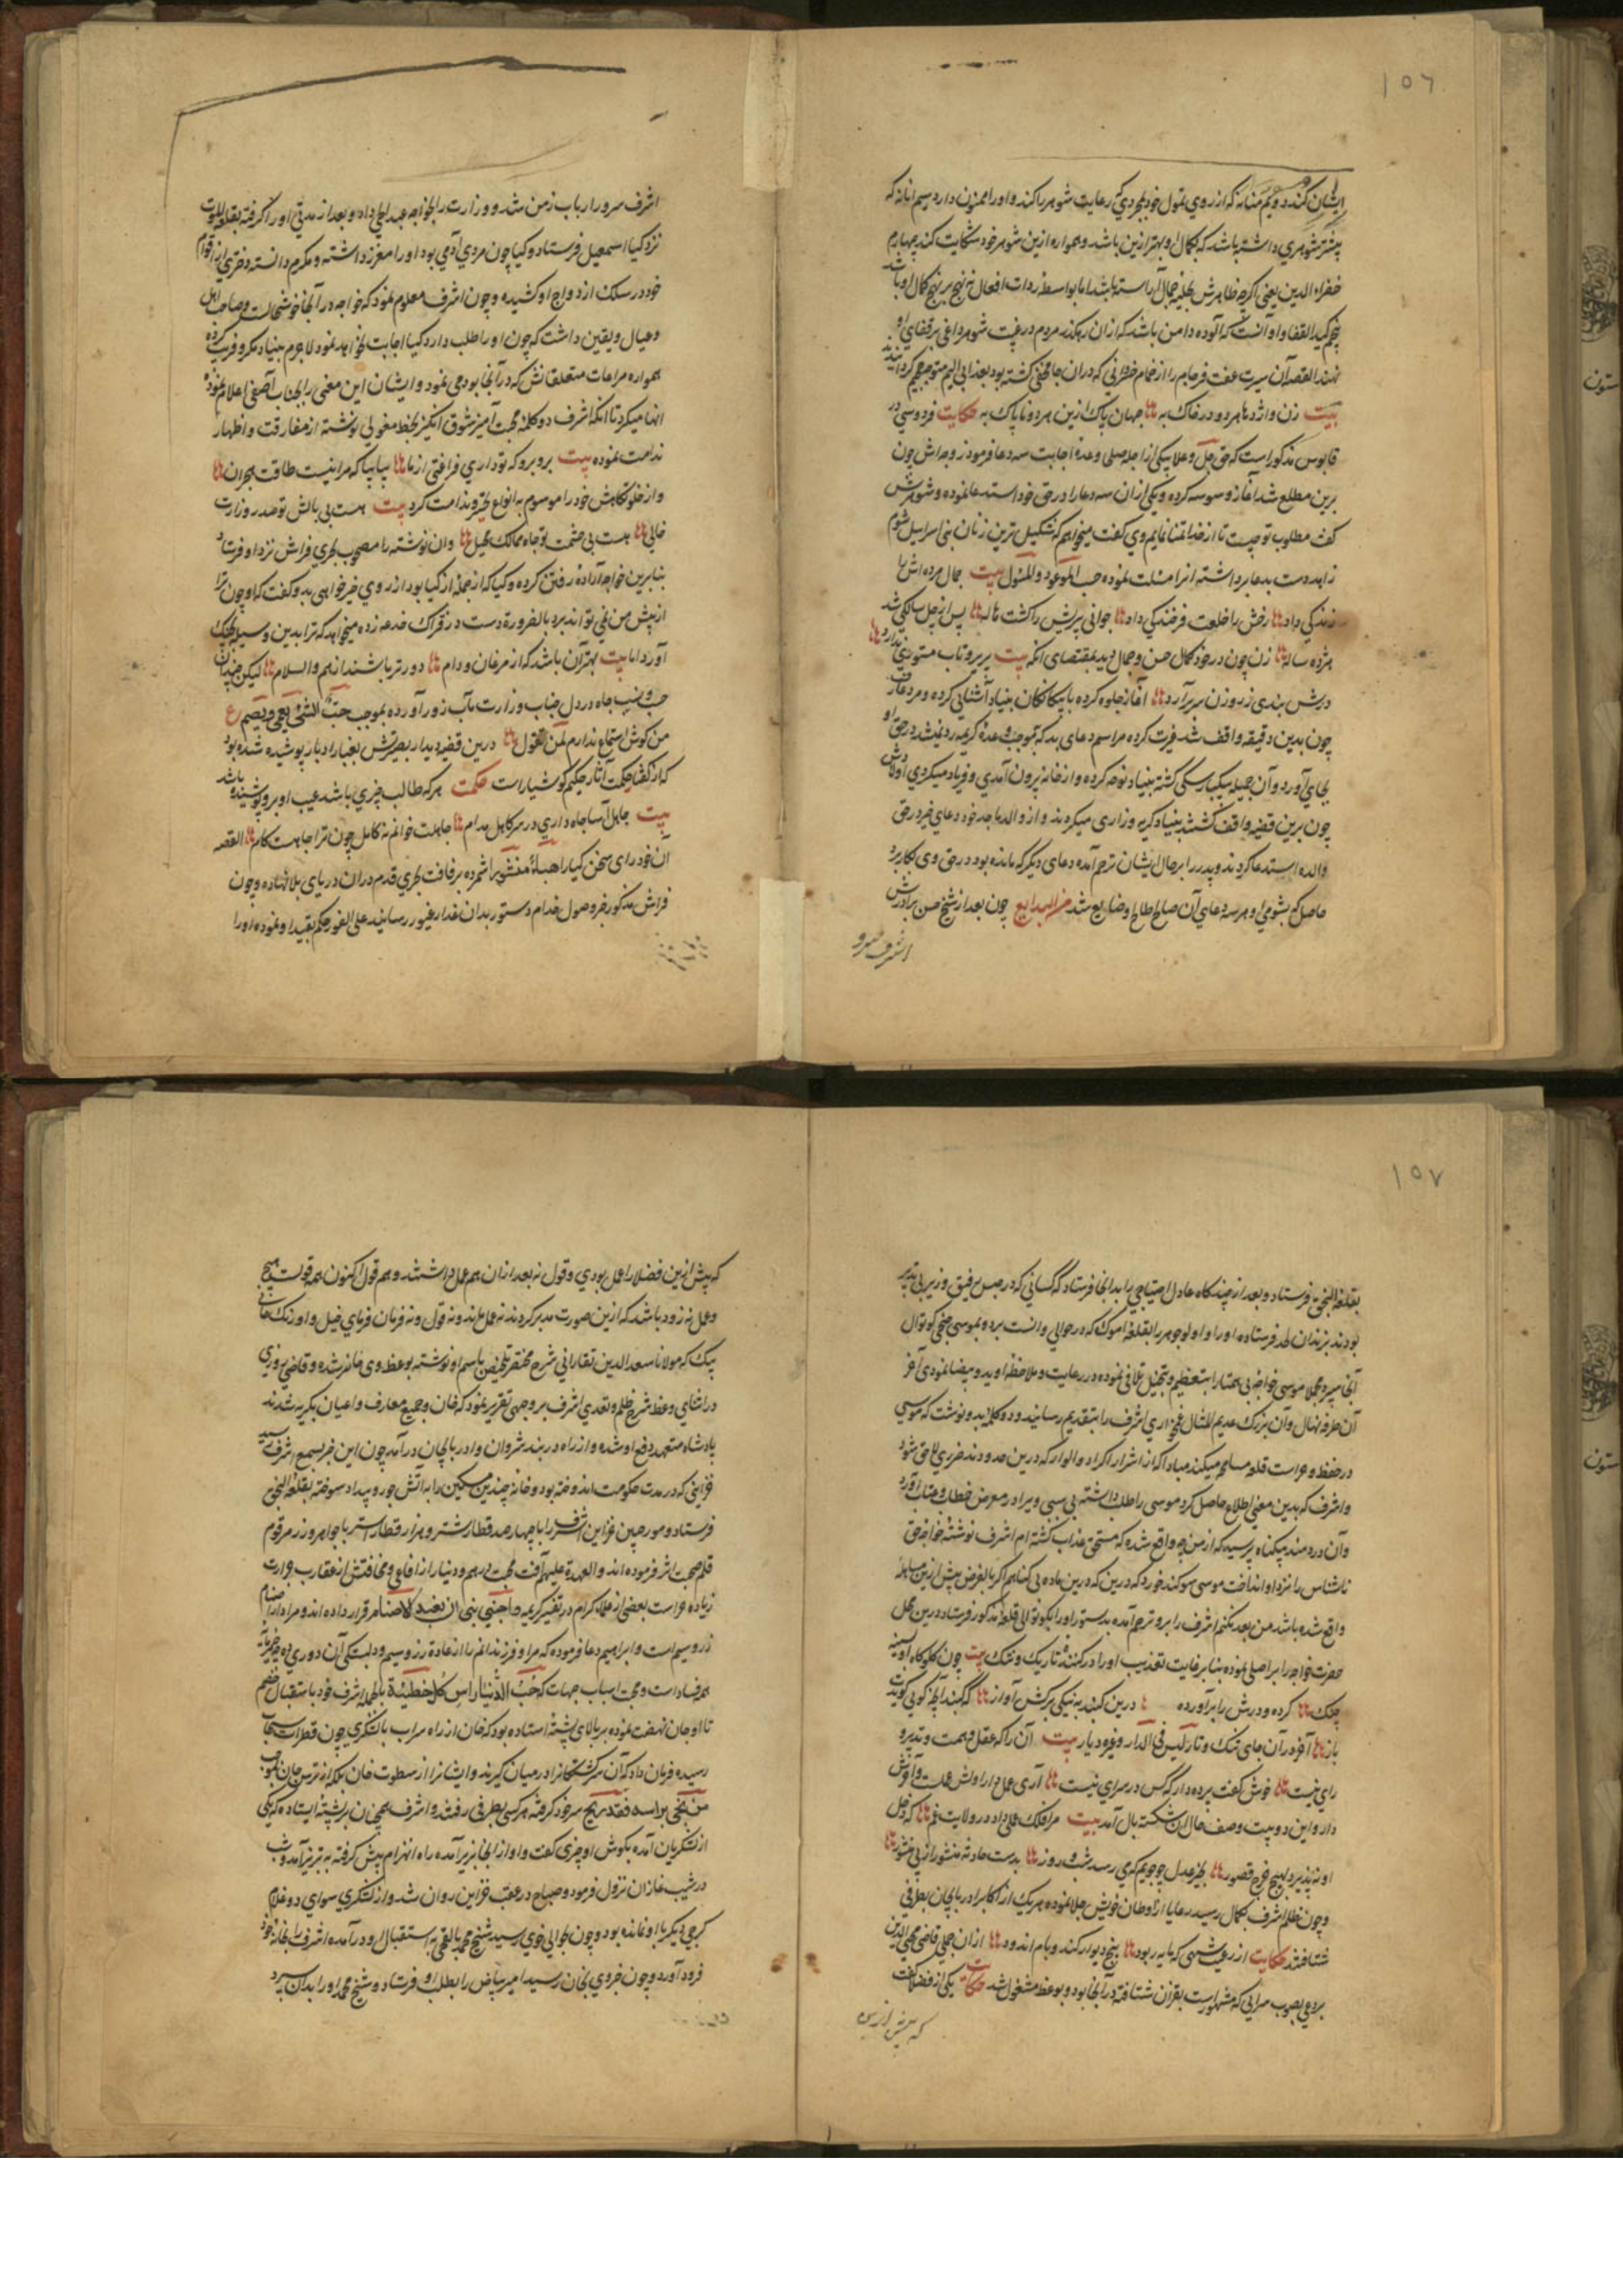 ۱۵۶
ایشان کند و یم منانه که از روی تمول خود بمردی کی رعایت شوهر را کند و او را ممنون دارد سیم انانه که
پیشتر شوهری داشته باشد که بکمال و بهتر ازین باشد و همواره ازین شوهر خود شکایت کند چهارم
خضراء الدمن یعنی اگرچه ظاهرش بحلیه جمال آراسته باشد اما بواسطه ردات افعال
پنجم کیة القفا و او آنست که آلوده دامن باشد که از ان رهگذر مردم در غیبت شوهر داغی بر قفای او
نهند القصه آن سیرت عفت فرجام را از حمام
بیت زن و اژدها هر دو در خاک به جهان پاک ازین هر دو ناپاک به حکایت فردوسی در
قابوس مذکور است که حق جل و علا یکی از اجله صلحا وعده اجابت سه دعا فرمود زوجه اش چون
برین مطلع شد آغاز وسوسه کرده و یکی از ان سه دعا را در حق خود استدعا نموده و شوهرش
گفت مطلوب تو چیست تا از خدا تمنا نمایم وی گفت میخواهم که شکیل ترین زنان بنی اسرائیل شوم
زاهد دست بدعا برداشته انرا مسئلت نموده حسب الموعود و المسئول بیت جمال مرده اش را
زندگی داد رخش را خلعت فرخندگی داد جوانی پیریش را گشت هاله پس از چل سالگی شد
هژده ساله زن چون در خود کمال حسن و جمال دید بمقتضای انکه بیت پریرو تاب مستوری ندارد
درش بندی ز روزن سر برآرد آغاز جلوه کرده با بیگانگان بنیاد آشنایی کرده و مرد عارف
چون بدین دقیقه واقف شد غیرت کرده مراسم دعای بد که بموجب وعده کریمه رد نمیشد در حق او
بجای آورد و آن جمیله بیکبار سگی گشته بنیاد نوحه کرده و از خانه بیرون آمدی و فریاد میکردی اولادش
چون برین قضیه واقف گشتند بنیاد گریه و زاری میکردند و از والد ماجد خود دعای خیر در حق
والده استدعا کردند و پدر را بر حال ایشان ترحم آمده دعای دیگر که مانده بود در حق وی بکار برد
حاصل که بشومی او هر سه دعای آن صالح طالح او ضایع شد من البدایع چون بعد از شیخ حسن برادرش
اشرف سرور
اشرف سرور ارباب زمن شد و وزارت را بخواجه عبدالحی داد و بعد از مدتی او را گرفته بقلعه الموت
نزد کیا اسمعیل فرستاد و کیا چون مردی آدمی بود او را معزز داشته و مکرم دانسته دختری از اقوام
خود در سلک ازدواج او کشیده و چون اشرف معلوم نمود که خواجه در آنجا خوشحالست و صاحب اهل
و عیال و یقین داشت که چون او را طلب دارد کیا اجابت نخواهد نمود لاجرم بنیاد مکر و فریب کرده
همواره مراعات متعلقانش که در آنجا بودند می نمود و ایشان این معنی را بجناب آصفی اعلام نموده
انها میکرد تا انکه اشرف دو کلمه محبت آمیز شوق انگیز بخط مغولی نوشته از مفارقت و اظهار
ندامت نموده بیت برو برو که تو داری فراغتی از ما بیا بیا که مرا نیست طاقت هجران
و از خلوتگاهش خود را موسوم به انواع تحیر و ندامت کرد بیت هست بی بالش تو صدر وزارت
خالی هست بی حشمت تو جاه ممالک تحیل و ان نوشته را مصحوب بحری فراش نزد او فرستاد
بنابرین خواجه اراده رفتن کرده و کیا که از جمله اذکیا بود از روی خیر خواهی بدو گفت که او چون ترا
از پیش من نمی تواند برد بالضرورة دست در فتراک خدعه زده میخواهد که ترا بدین وسیله بچنگ
آورد اما بیت بهتر آن باشد که از مرغان و دام دورتر باشند از هم والسلام لیکن چندان
حب منصب جاه در دل جناب وزارت مآب زور آورده بموجب حب الشئ یعمی و یصم ع
من گوش استماع ندارم لمن تقول درین قضیه دیدار بصیرتش بغبار ادبار پوشیده شده بود
که از گفتار حکمت آثار حکیم گوشیار است حکمت هر که طالب چیزی باشد عیب او برو پوشیده باشد
بیت جاهل آسا جاه داری در سر کاهل مدام جاهلت خوانم نه کامل چون ترا جاهست کام القصه
آن خود رای سخن کیا را هباء منثورا شمرده برفاقت بحری قدم در ان دریای بلا نهاده و چون
فراش مذکور خبر وصول خدام دستور بدان غدار غیور رسانید علی الفور حکم بقید او نموده او را
۱۵۷
بقلعه النجق فرستاد و بعد از چند گاه عادل اختیاجی را بدانجا فرستاد که کسانی که در حبس رفیق وزیر بی تدبیر
بودند بزندان لحد فرستاده او را و اولوجوهر را بقلعه اموک که در حوالی وانست برده بموسی صنجی کوتوال
آنجا سپرد مجملا موسی خواجه بی همتا را بتعظیم و تبجیل تلاقی نموده در رعایت و ملاحظه او ید و بیضا نمودی آخر
آن طرفه نهال و آن بزرگ عدیم المثال غمخواری اشرف را بتقدیم رسانید و دو کلمه بدو نوشت که موسی
در حفظ و حراست قلعه مساهله میکند مبادا که از اشرار اکراد و الوار که درین حدودند ضرری لاحق شود
و اشرف که بدین معنی اطلاع حاصل کرد موسی را طلب داشته بی سببی ویرا در معرض خطاب و عتاب آورد
و آن دردمند بیگناه پرسید که از من چه واقع شده که مستحق عذاب گشته ام اشرف نوشته خواجه حق
ناشناس را نزد او انداخت موسی سوگند خورد که درین ماده بی گناهم اگر بالفرض پیش ازین مساهله
واقع شده باشد من بعد نکنم اشرف را برو ترحم آمده بدستور او را بکوتوالی قلعه مذکور فرستاد درین محل
حضرت خواجه را بر اصلی نموده بنابر غایت تعذیب او را در گنبد تاریک و تنگ بیت چون گلوگاه نای و سینه
چنگ کرده و درش را برآورده درین گنبد به نیکی برکش آواز که گنبد آنچه گوئی گویدت
باز آخر در آن جای تنگ و تار لیس فی الدار و غیره دیار بیت آن را که عقل و همت و تدبیر و
رای نیست خوش گفت پرده دار که کس در سرای نیست آری عمل دار اولش عملست و آخرش
دار و این دو بیت وصف حال آن شکسته بال آمد بیت مرا فلک عملی داد در ولایت غم که دخل
او نپذیرد بهیچ خرج قصور
و چون ظلم اشرف بکمال رسید رعایا از اوطان خویش جلا نموده هر یک از اکابر اذربایجان بطرفی
شتافتند حکایت از رعیت شهی که مایه ربود بیخ دیوار کند و بام اندود از ان جمله قاضی محیی الدین
بردعی بصوب سرای که مشهور است بقرآن شتافته در آنجا بود و بوعظ مشغول شد حکایت یکی از فضلا گفت
که پیش ازین
که پیش ازین فضلا را عمل بودی و قول نه بعد از ان هم عمل داشتند و هم قول اکنون همه قولست هیچ
و عمل نه زود باشد که ازین صورت مدبر گردند نه عمل ماند و نه قول و نه فرمان فرمای خیل و اوزبک جانی
بیک که مولانا سعد الدین تفتازانی شرح مختصر تلخیص باسم او نوشته بوعظ وی حاضر شده و قاضی روزی
در اثنای وعظ شرح ظلم و تعدی اشرف بر وجهی تقریر نمود که خان و جمیع معارف و اعیان بگریه شدند
پادشاه متعهد دفع او شده و از راه دربند شروان و اذربایجان درآمد چون این خبر بسمع اشرف رسید
خزاینی که در مدت حکومت اندوخته بود و خانه چندین مسکین را به آتش جور و بیداد سوخته بقلعه النجق
فرستاد و مورخین خزاین اشرف را با چهارصد قطار شتر و هزار قطار استر با جواهر و زر مرقوم
قلم صحت اثر فرموده اند و العهدة علیهم آفت محبت درهم و دینار از افاعی و مخافتش از عقارب جرارت
زیاده تر است بعضی از علماء کرام در تفسیر کریمه واجنبنی و بنی ان نعبد الاصنام قرار داده اند و مراد از اصنام
زر و سیم است و ابراهیم دعا فرموده که مرا و فرزندانم را از عادة زر و سیم و دلبستگی آن دوری ده
همه فساد است و محبت اسباب جهات که حب الدنیا راس کل خطیئة بالجمله اشرف خود باستقبال خصم
تا اوجان نهضت نموده بر بالای پشته استاده بود که خان از راه سراب با لشکری چون قطرات سحاب
رسیده فرمان داد که آن سرگشتگانرا در میان گیرند و ایشانرا از سطوت خان بلکه از ترس جان بموجب
من نجی براسه فقد ربح سر خود گرفته هر کسی بطرفی رفتند و اشرف همچنان بر پشته ایستاده که یکی
از لشکریان آمده بگوش او چیزی گفت و او از آنجا بزیر آمده راه انهزام پیش گرفته به تبریز آمد و شب
در شنب غازان نزول فرمود و صباح در عقب خزاین روان شد و از لشکری سوای دو غلام
گرجی دیگر با او نمانده بود و چون بحوالی خوی رسید شیخ محمد بالقچی به استقبال او درآمده اشرف را بخانه خود
فرود آورد و چون خبر وی بخان رسید امیر بیاض را بطلب او فرستاد و شیخ محمد او را بدان سپرد